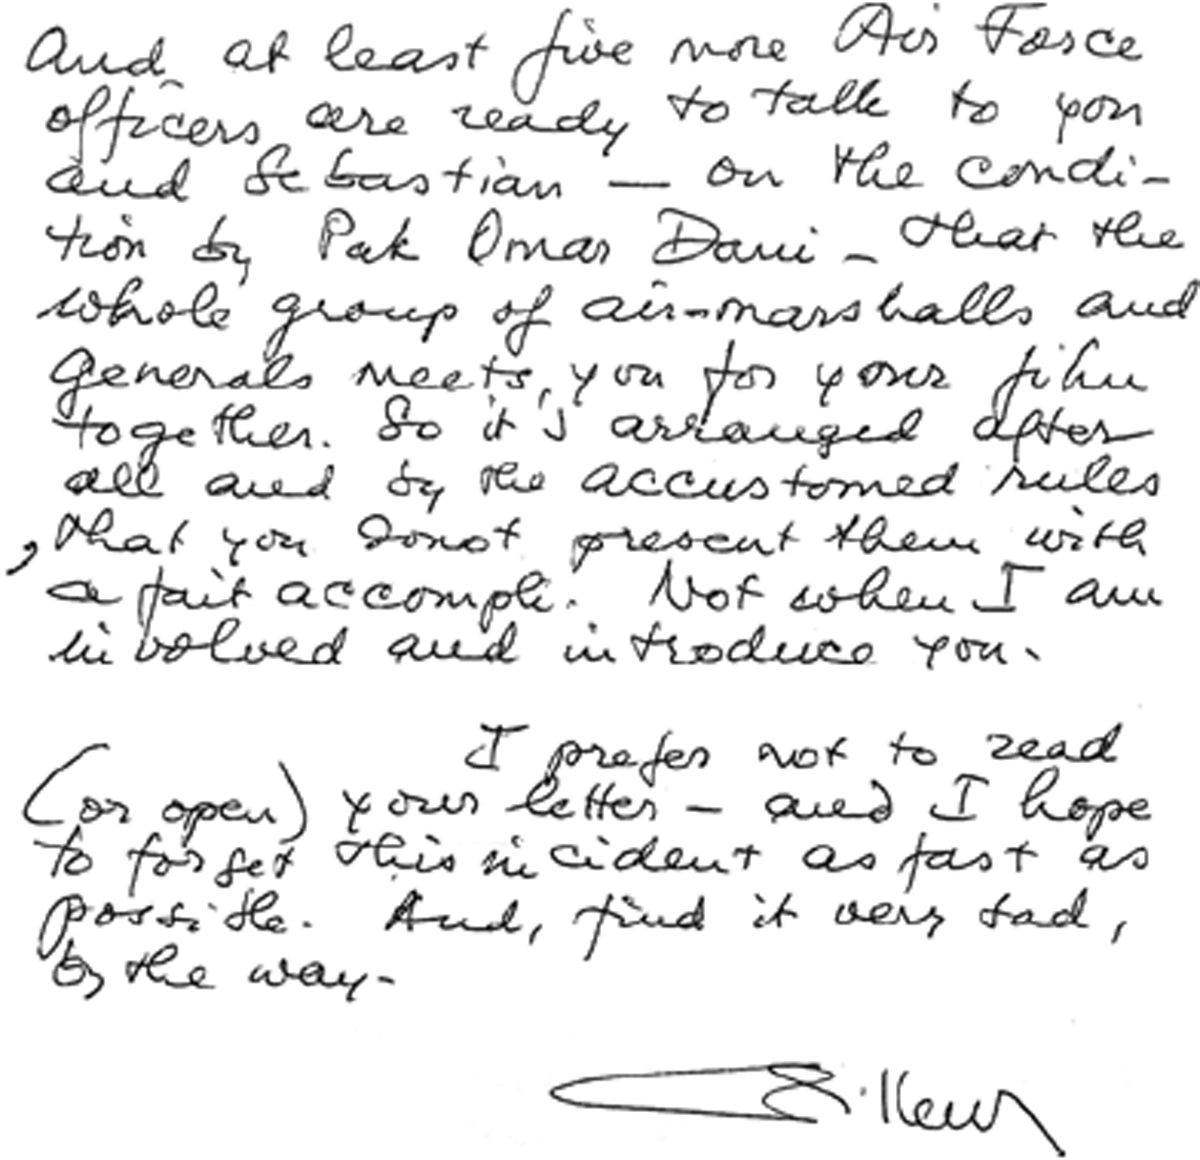 And at least five more Air Force
officers are ready to talk to you
and Sebastian — on the condi-
tion by Pak Omar Dani - that the
whole group of air-marshalls and
generals meets, you for your film
together. So it's arranged after
all and by the accustomed rules
, that you donot present them with
a fait accompli. Not when I am
involved and introduce you.
I prefer not to read
(or open) your letter - and I hope
to forget this incident as fast as
possible. And, find it very sad,
by the way-